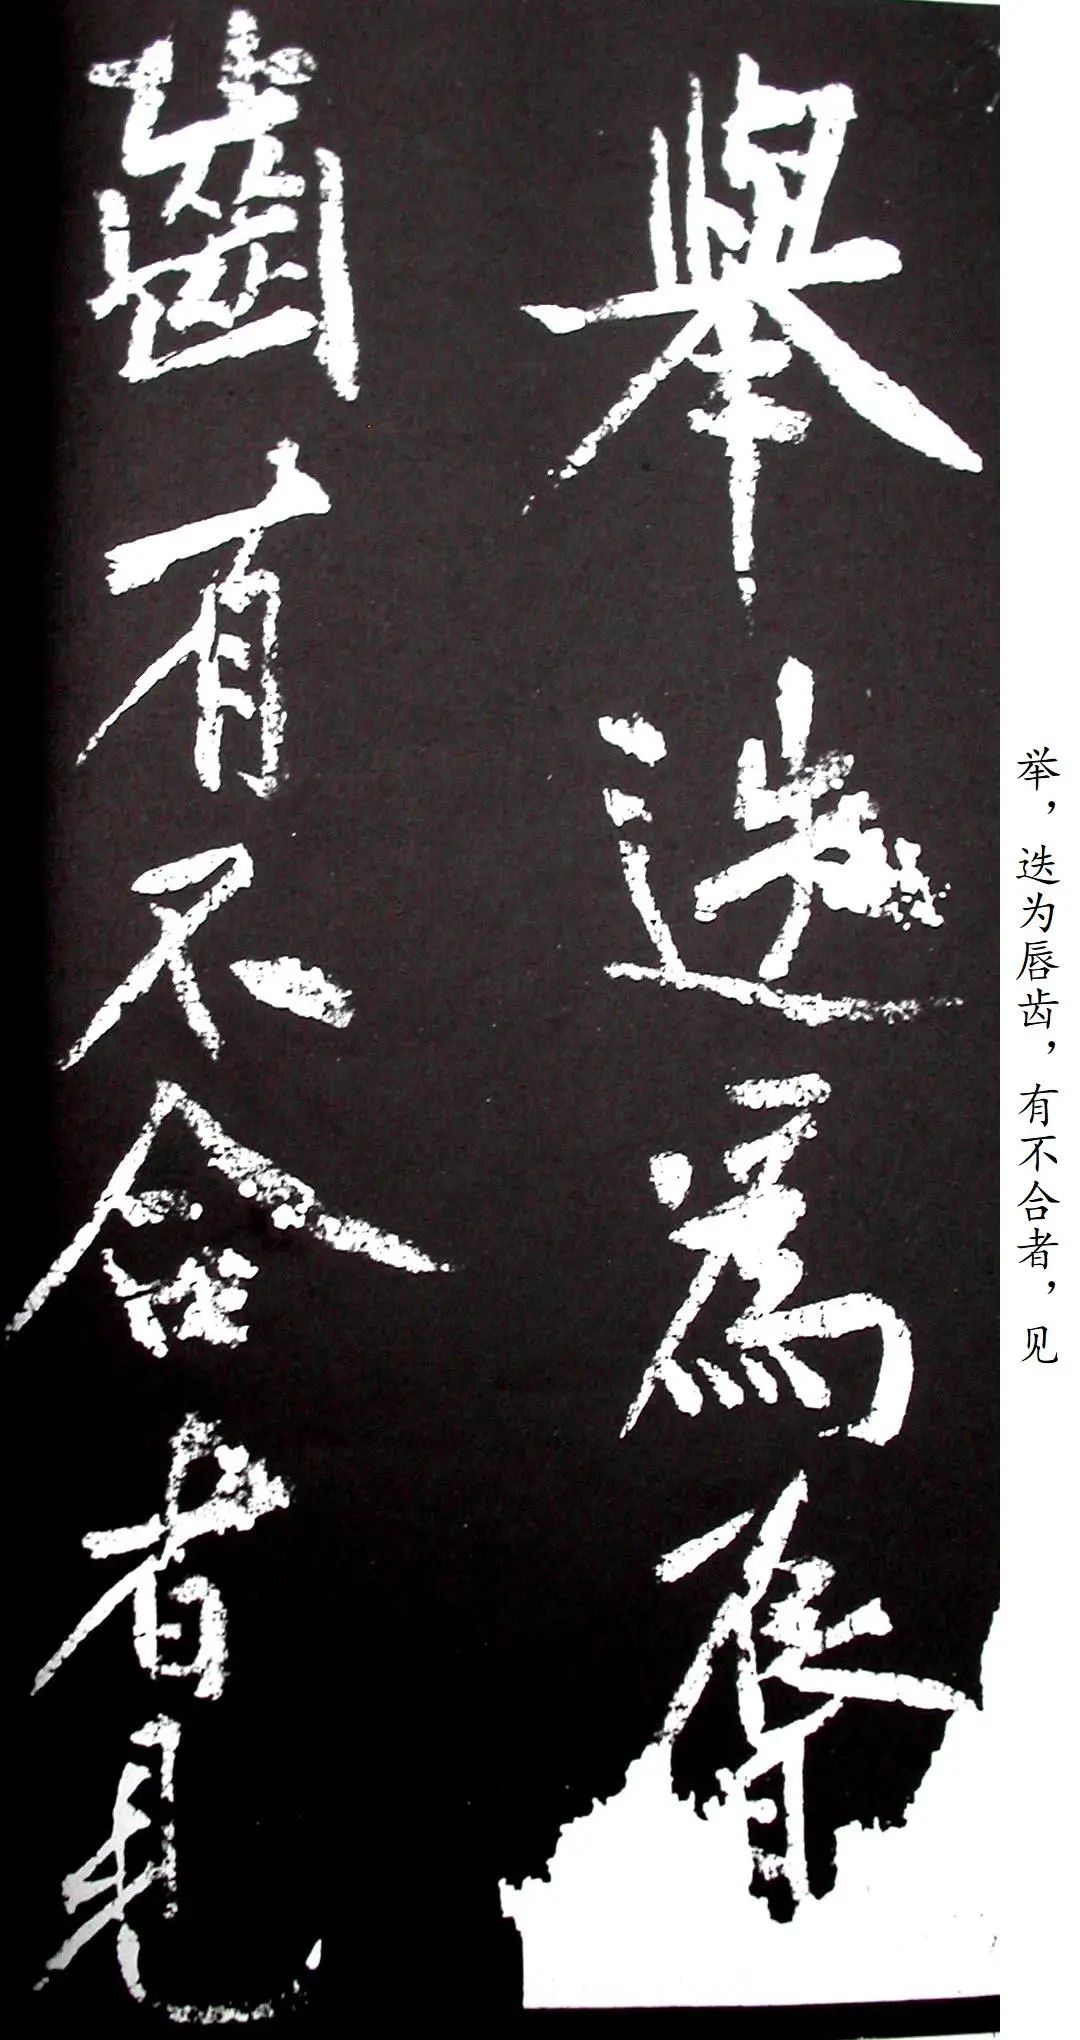 舉迭為脣
齒有不合者見
举，迭为唇齿，有不合者，见